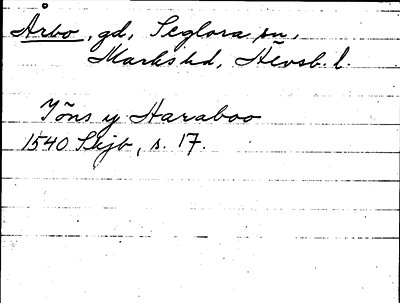 Årbo, gd, Seglora sn,
Marks hd, Älvsb. l.
Jöns y Haraboo
1540 Skjb, s. 17.